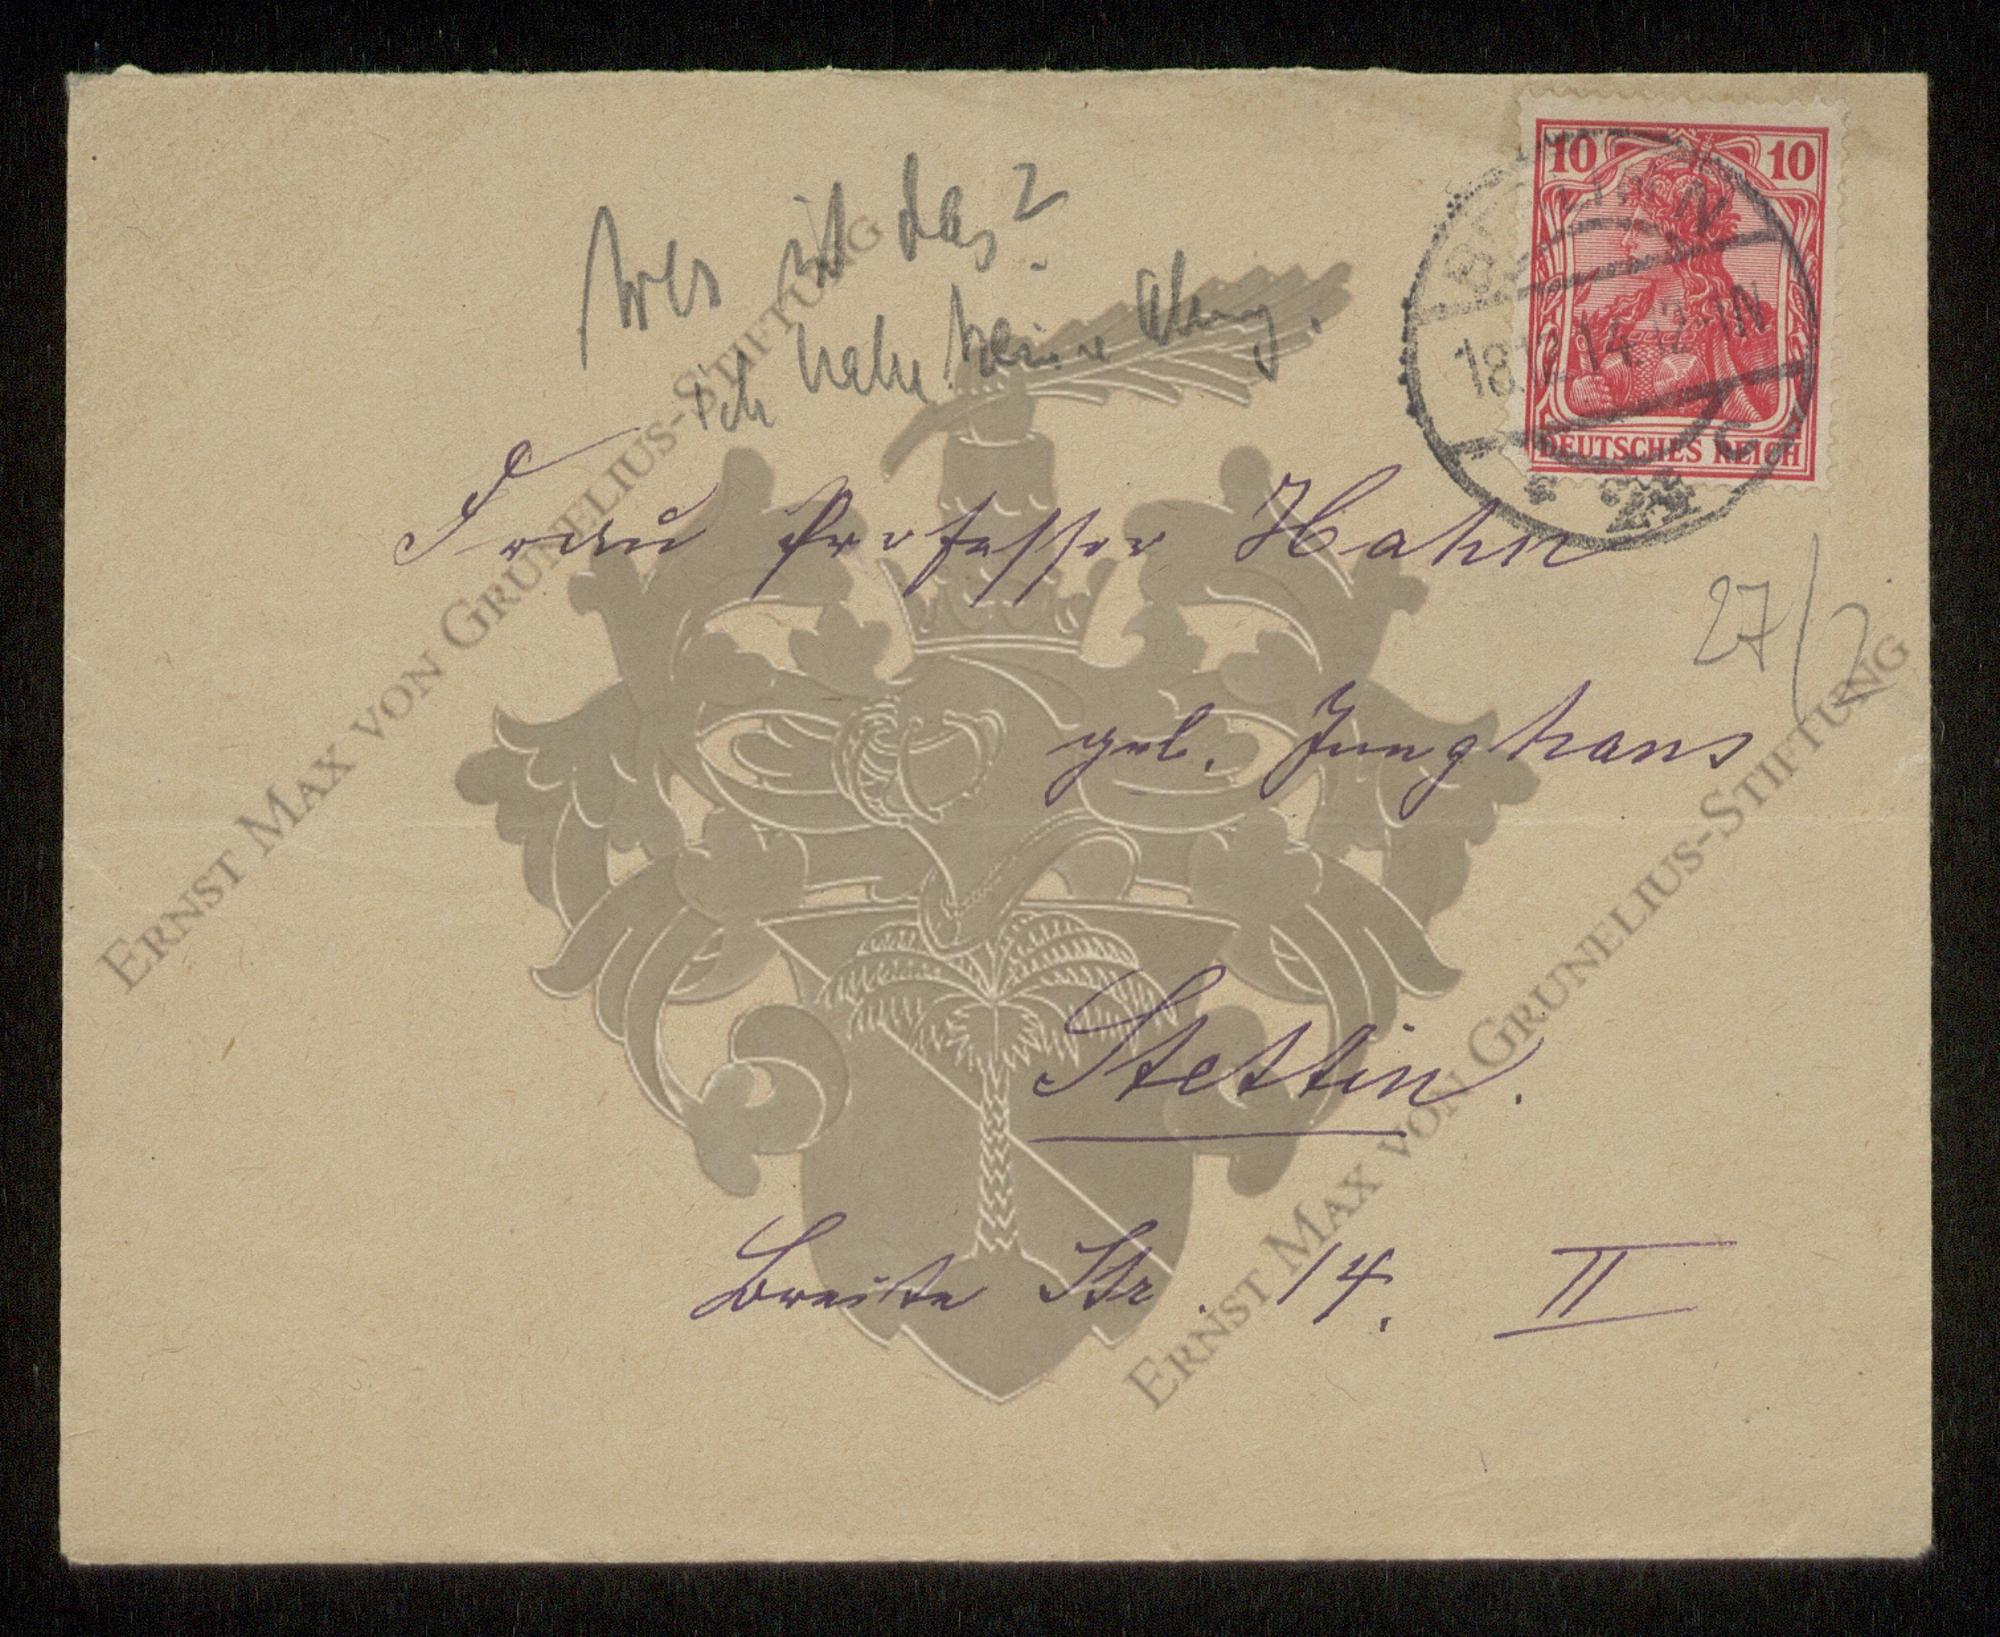 Wer ist das?
ich habe keine Ahnung.
10 10
BERLIN
18.12.14. 12-1N
C
DEUTSCHES REICH
Frau Professor Hahn
27/2
geb. Junghans
Stettin.
Breite Str. 14. II
ERNST MAX VON GRUNELIUS-STIFTUNG
ERNST MAX VON GRUNELIUS-STIFTUNG